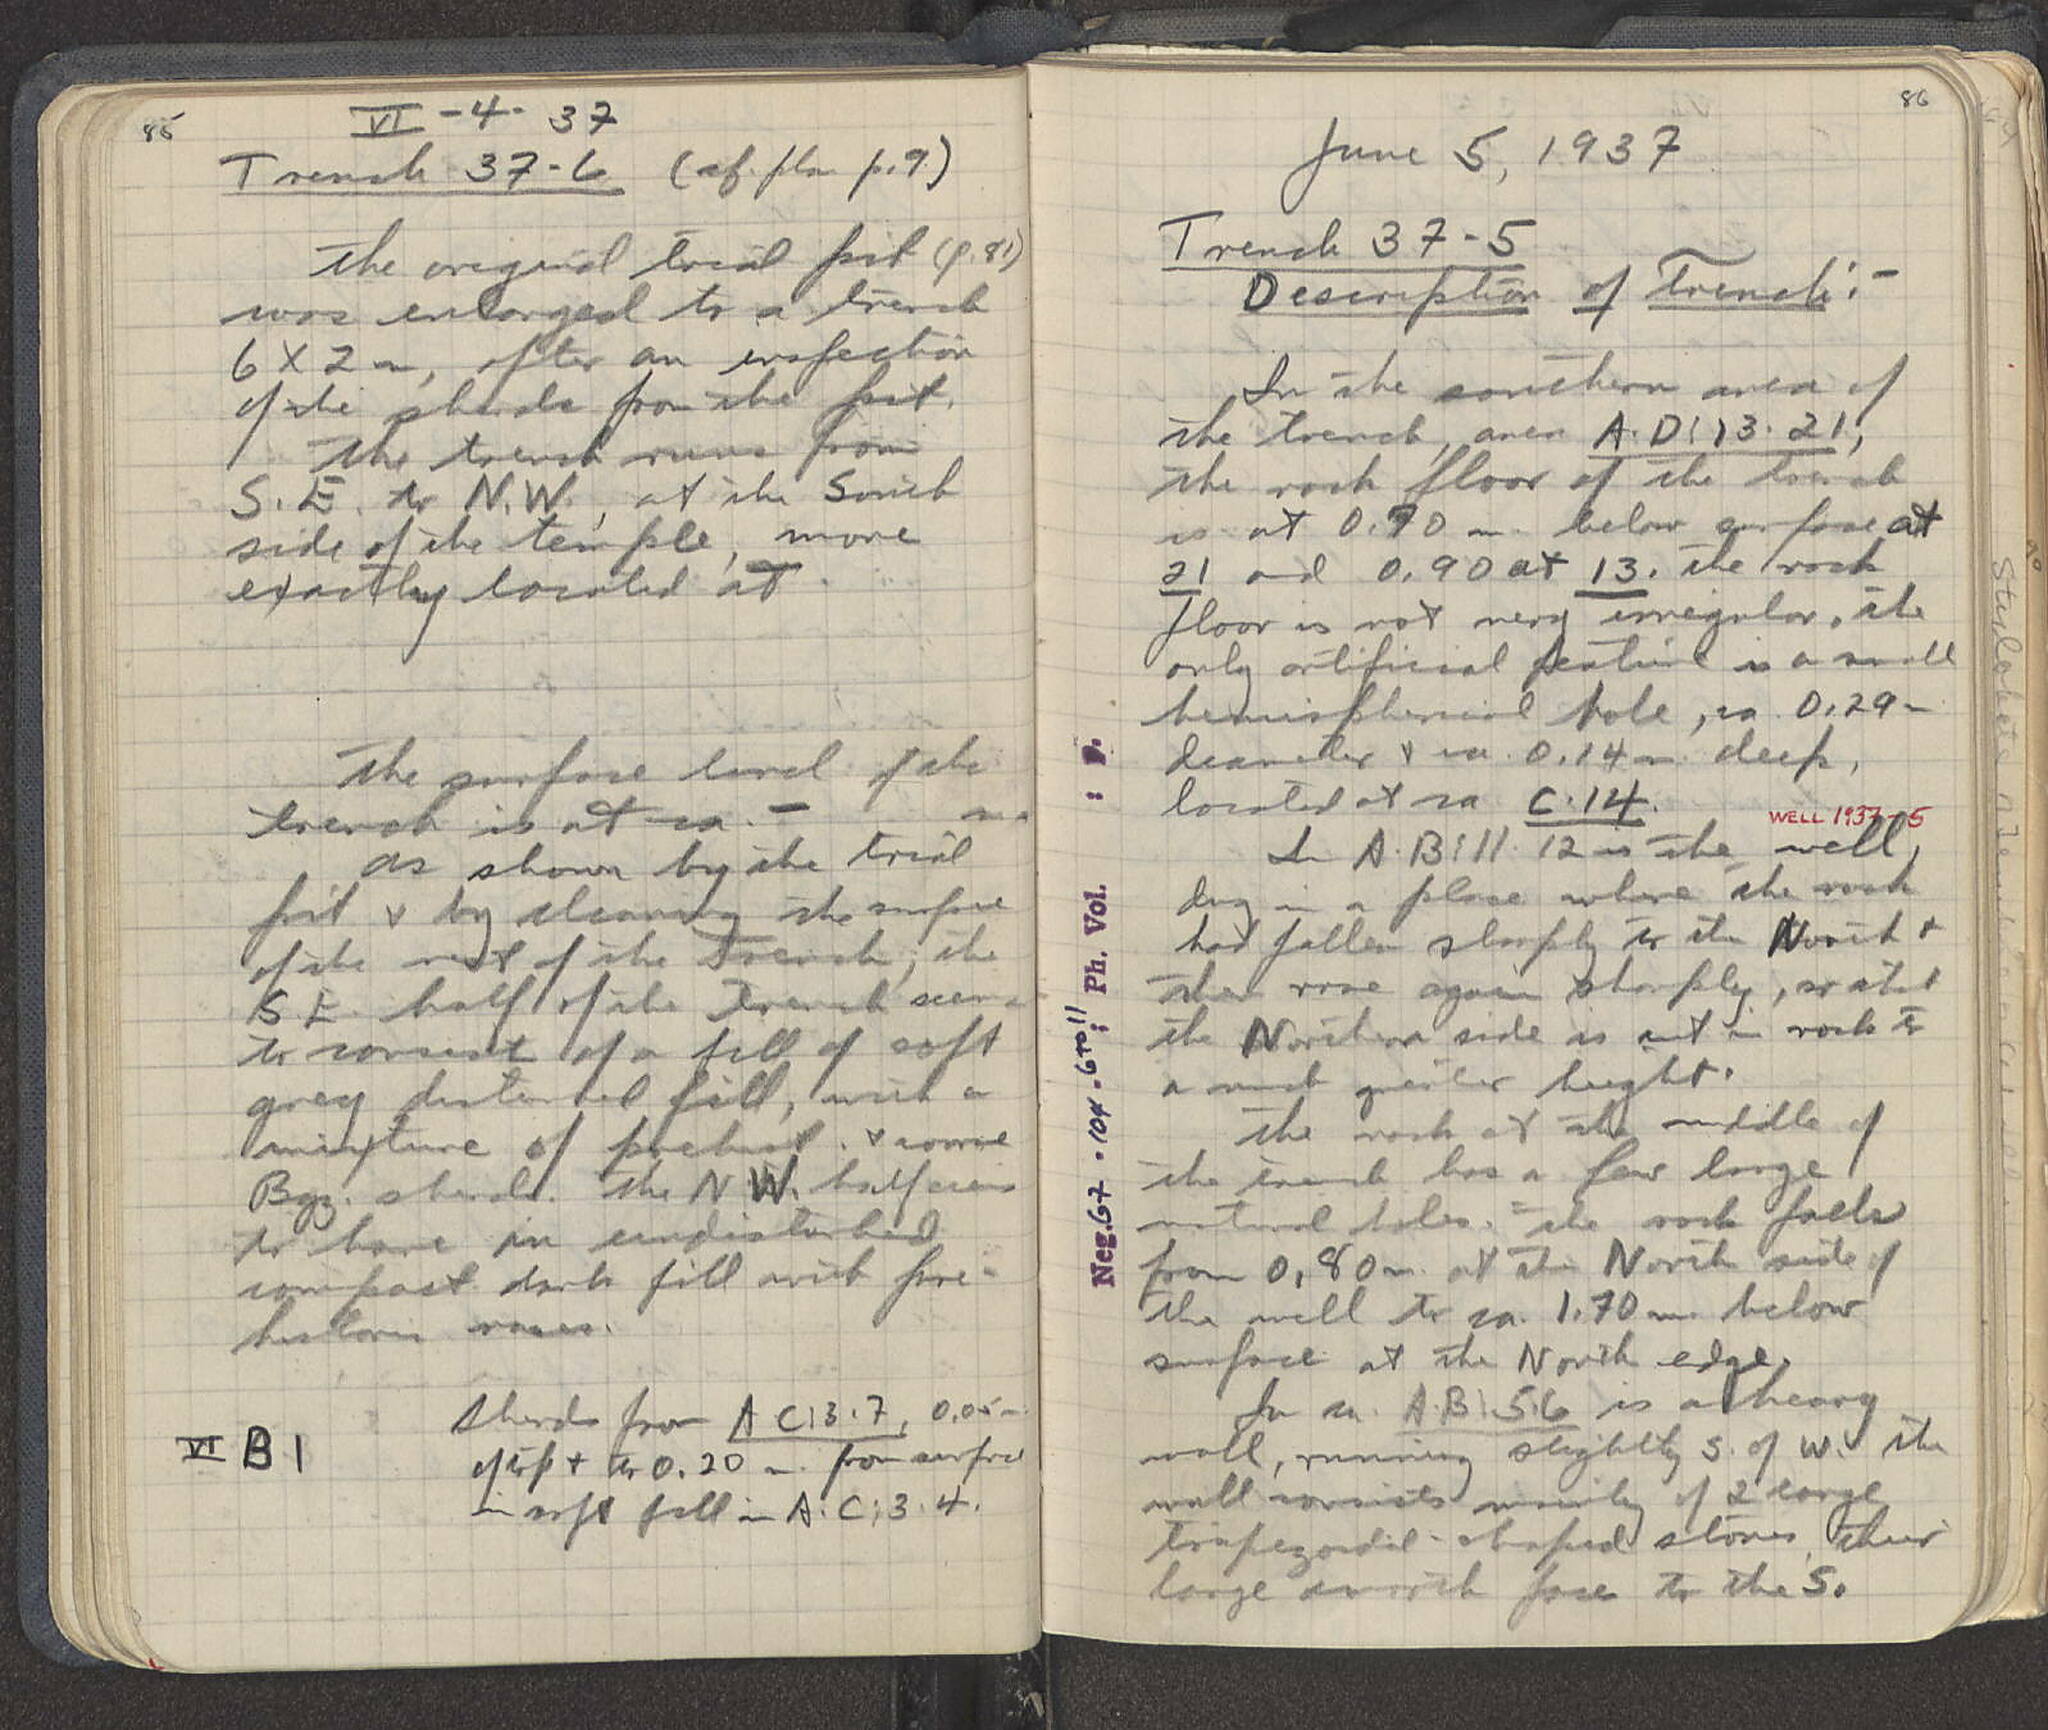 85
VI - 4 - 37
Trench 37-6 (cf. plan p. 9.)
The original trial pit (p. 81)
was enlarged to a trench
6 X 2 m, after an inspection
of the sherds from the pit.
The trench runs from
S.E. to N.W., at the South
side of the temple, more
exactly located at
The surface level of the
trench is at ca. — m.
As shown by the trial
pit & by cleaning the surface
of the rest of the trench, the
S E. half of the trench seems
to consist of a fill of soft
grey disturbed fill, with a
mixture of prehist. & some
Byz. sherds. The N W. half seems
to have an undisturbed
compact dark fill with pre-
historic vases.
VI B 1
Sherds from A C:3.7, 0.05 m
of top + to 0.20 m. from surface
in soft fill in A.C:3.4.
86
June 5, 1937
Trench 37-5
Description of Trench:-
In the southern area of
the trench, area A.D:13.21,
the rock floor of the trench
is at 0.70 m. below surface at
21 and 0.90 at 13. The rock
floor is not very irregular. The
only artificial feature is a small
hemispherical hole, ca. 0.29 m
diameter & ca. 0.14 m. deep,
located at ca C.14.
WELL 1937-5
In A.B:11.12 is the well,
dug in a place where the rock
had fallen sharply to the North &
then rose again sharply, so that
the Northern side is cut in rock to
a much greater height.
The rock at the middle of
the trench has a few large
natural holes. The rock falls
from 0,80 m. at the North side of
the well to ca. 1.70 m. below
surface at the North edge.
In ca. A.B:5.6 is a heavy
wall, running slightly S. of W. The
wall consists mainly of 2 large
trapezoidal-shaped stones, their
large smooth face to the S.
Neg. 67 - 104 - 6 to 11 : Ph. Vol. : p.